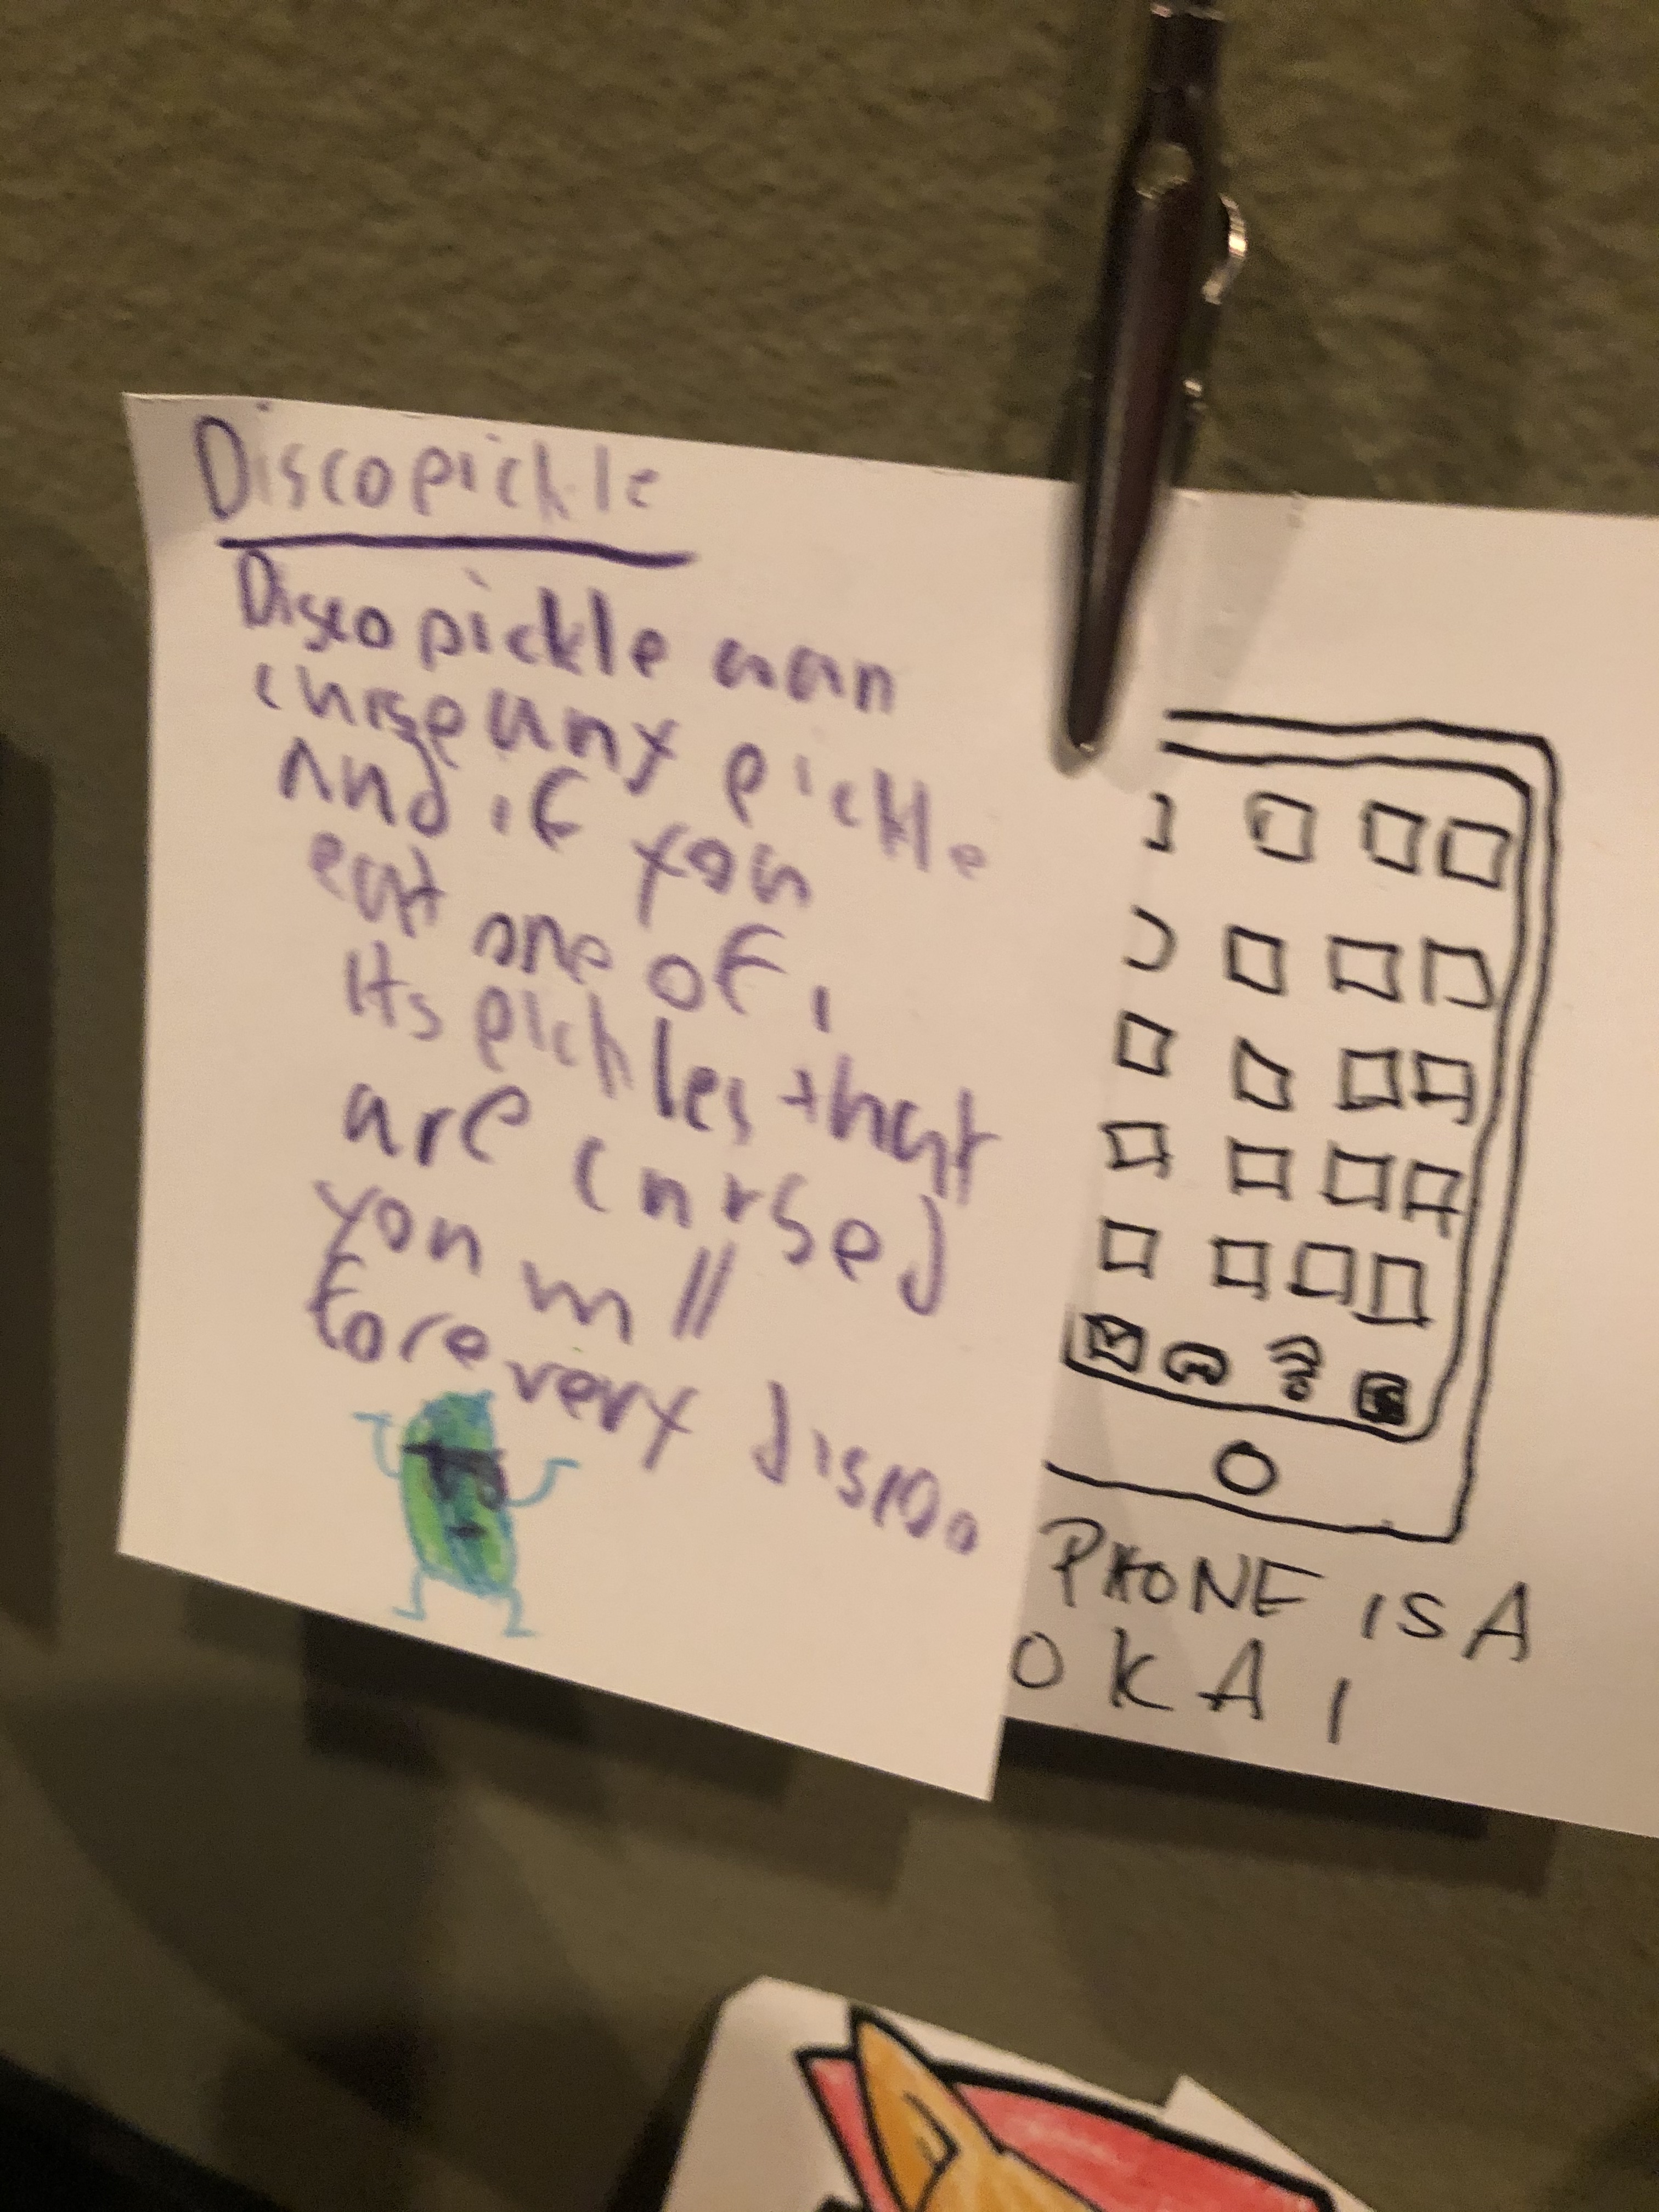 Discopickle
Disco pickle can
curse any pickle
And if you
eat one of
its pickles that
are cursed
you will
forevery disco.
PHONE IS A
OKAI